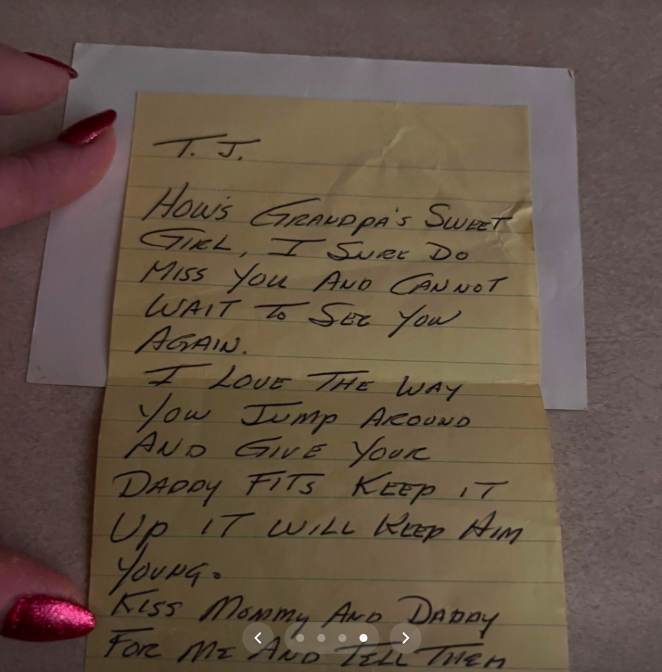 T. J.
HOW'S GRANDPA'S SWEET
GIRL, I SURE DO
MISS YOU AND CANNOT
WAIT TO SEE YOU
AGAIN.
I LOVE THE WAY
YOU JUMP AROUND
AND GIVE YOUR
DADDY FITS KEEP IT
UP IT WILL KEEP HIM
YOUNG.
KISS MOMMY AND DADDY
FOR ME AND TELL THEM